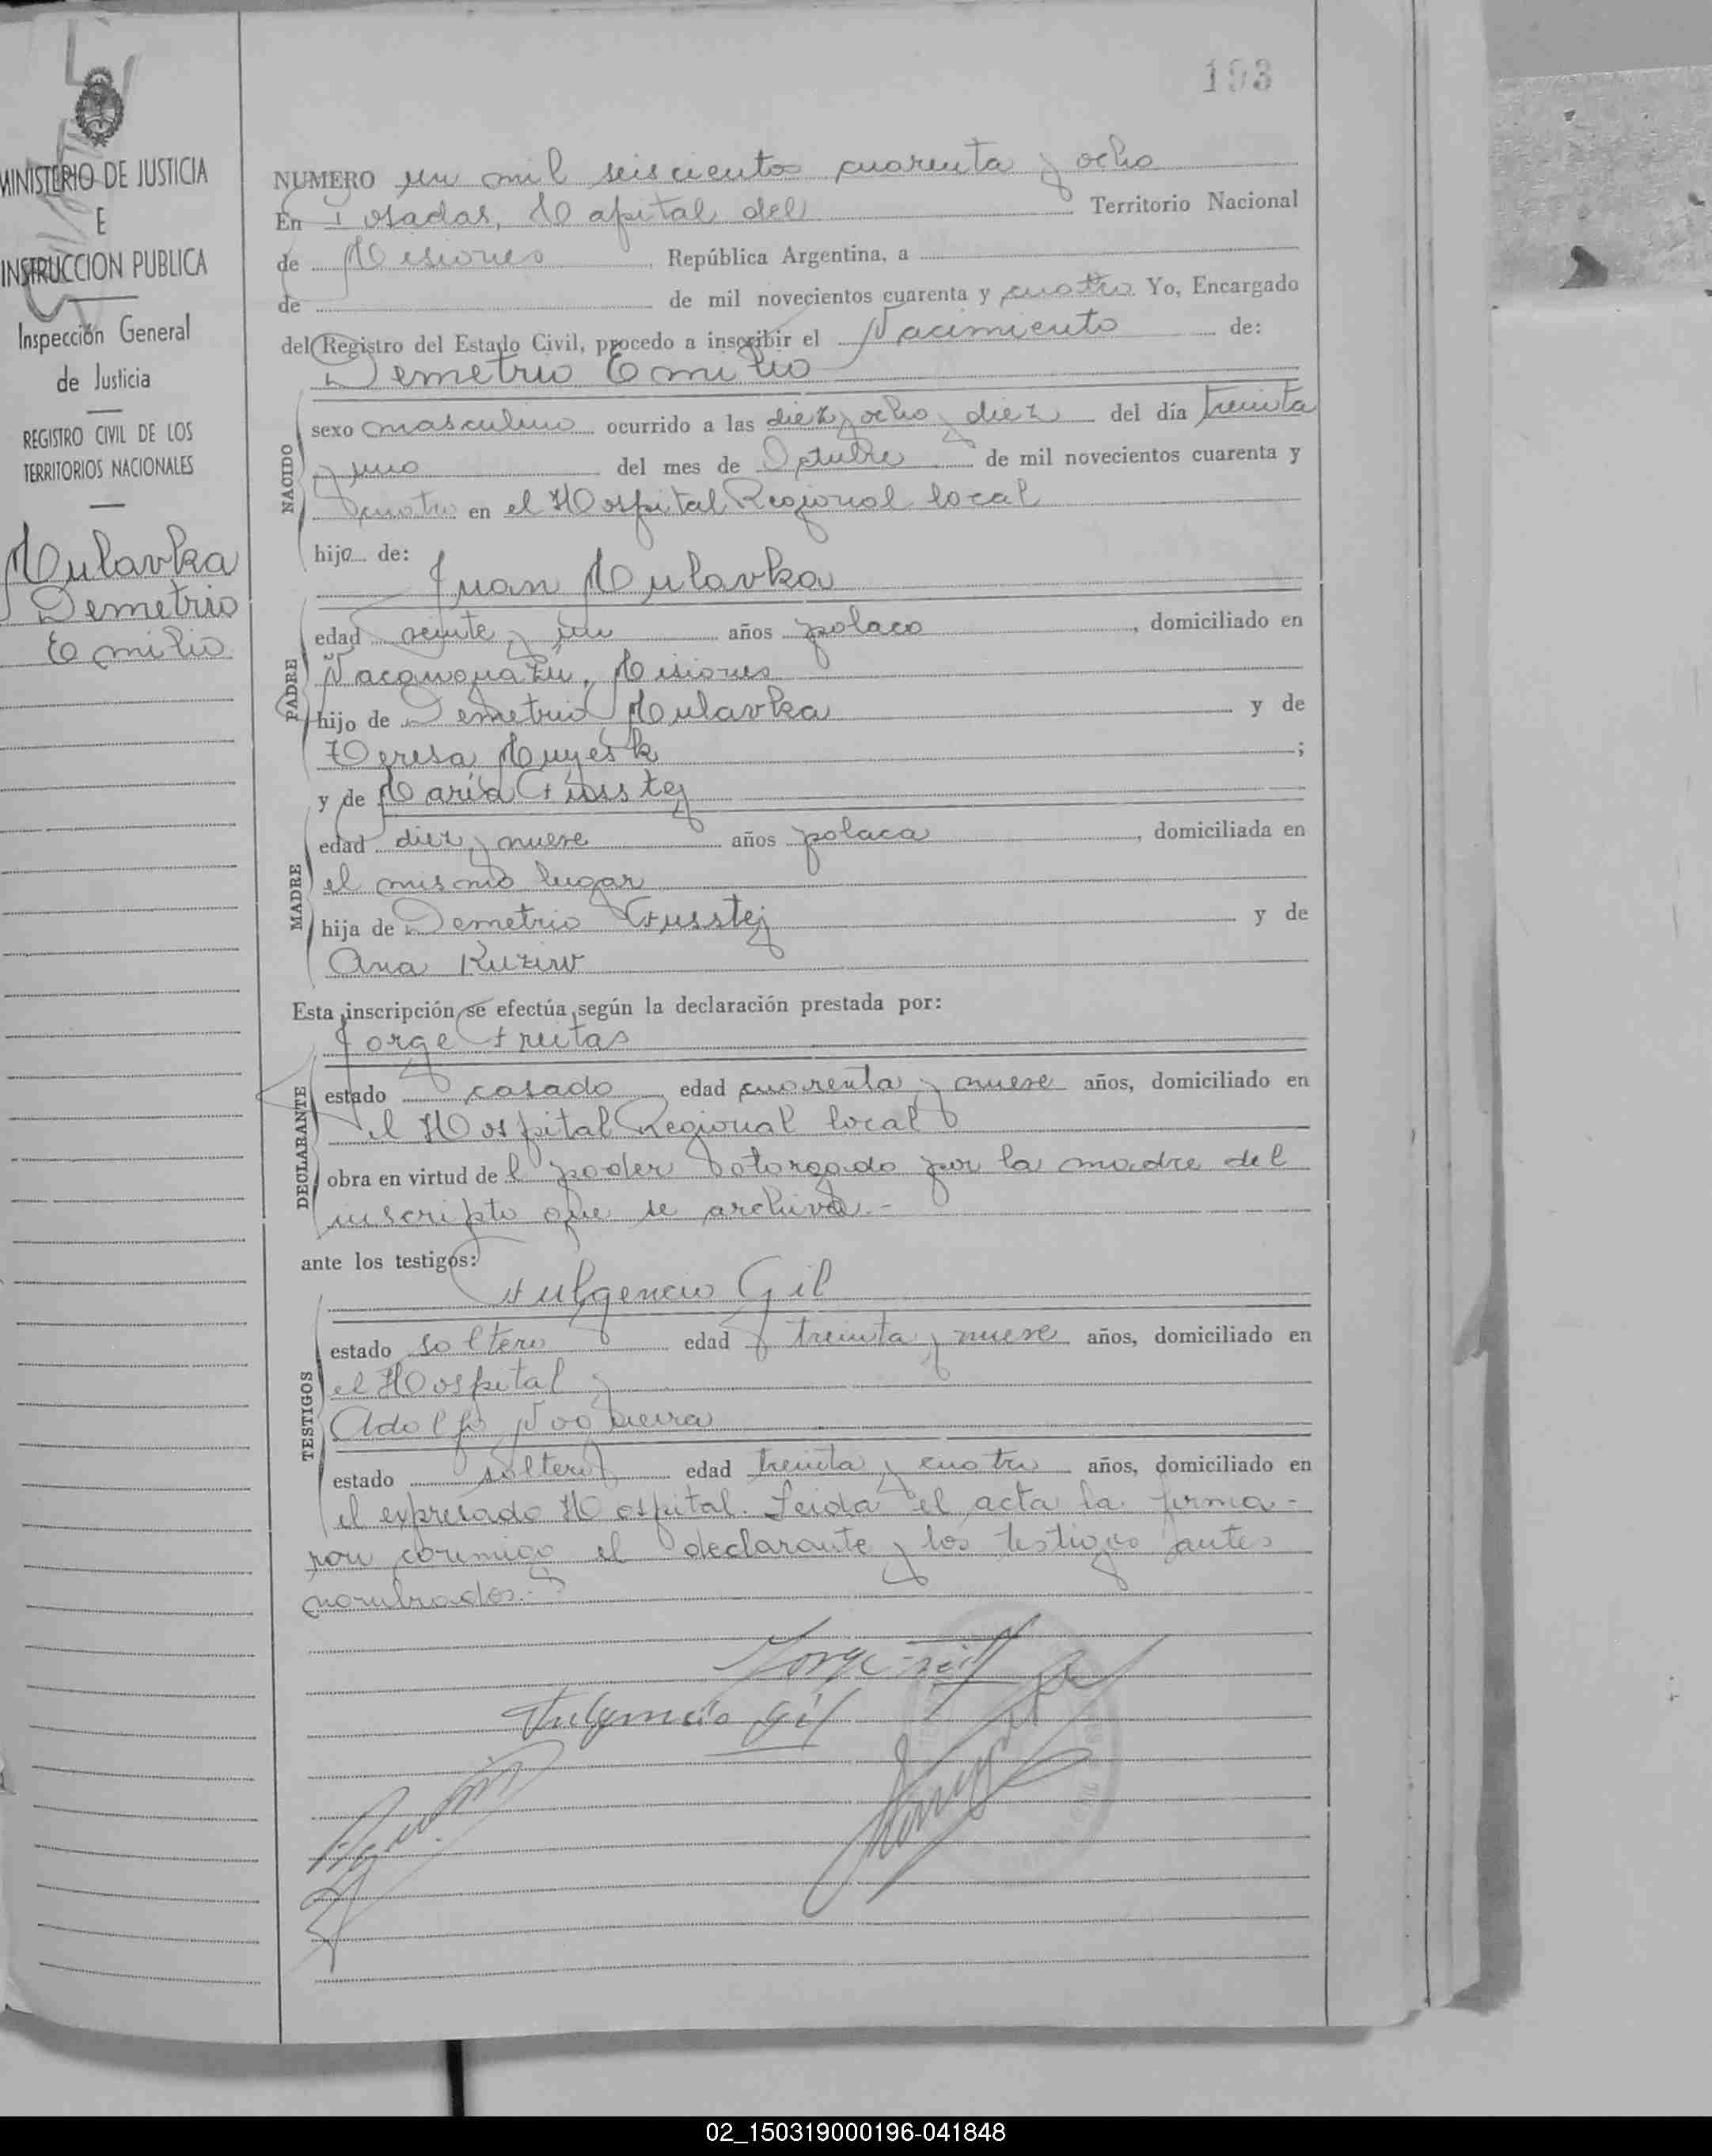 193
MINISTERIO DE JUSTICIA
E
INSTRUCCION PUBLICA
Inspección General
de Justicia
REGISTRO CIVIL DE LOS
TERRITORIOS NACIONALES
Mulavka
Demetrio
Emilio
NUMERO un mil seiscientos cuarenta y ocho
En Posadas, Capital del Territorio Nacional
de Misiones República Argentina, a
de de mil novecientos cuarenta y cuatro Yo, Encargado
del Registro del Estado Civil, procedo a inscribir el Nacimiento de:
Demetrio Emilio
NACIDO
sexo masculino ocurrido a las diez y ocho y diez del día treinta
y uno del mes de Octubre de mil novecientos cuarenta y
cuatro en el Hospital Regional local
hijo de:
Juan Mulavka
PADRE
edad veinte y un años polaco, domiciliado en
Ñacanguazu, Misiones
hijo de Demetrio Mulavka y de
Teresa Muyesk;
y de María Fusstej
MADRE
edad diez y nueve años polaca, domiciliada en
el mismo lugar
hija de Demetrio Fusstej y de
Ana Kuziw
Esta inscripción se efectúa según la declaración prestada por:
Jorge Freitas
DECLARANTE
estado casado edad cuarenta y nueve años, domiciliado en
el Hospital Regional local
obra en virtud del poder otorgado por la madre del
inscripto que se archiva.-
ante los testigos:
Fulgencio Gil
TESTIGOS
estado soltero edad treinta y nueve años, domiciliado en
el Hospital y
Adolfo Nogueira
estado soltero edad treinta y cuatro años, domiciliado en
el expresado Hospital. Leida el acta la firma-
ron conmigo el declarante y los testigos antes
nombrados.-
Jorge
Fulgencio Gil
02_150319000196-041848